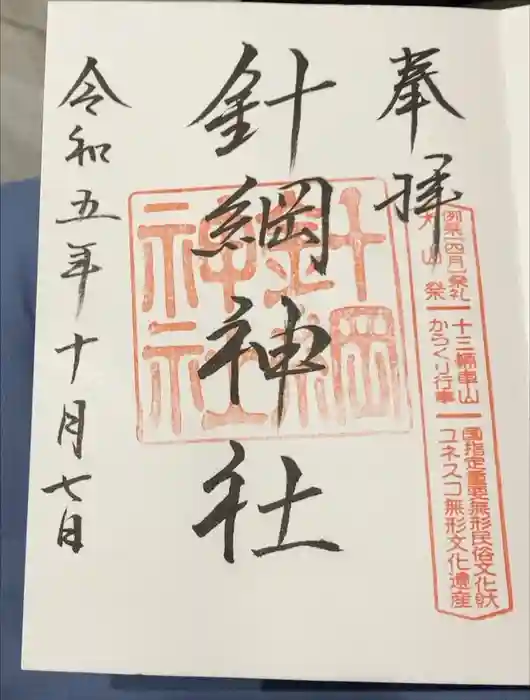 奉拝
例祭(四月)祭礼
犬山祭
十三輌車山
からくり行事
国指定重要無形民俗文化財
ユネスコ無形文化遺産
針綱神社
針綱
神社
令和五年十月七日